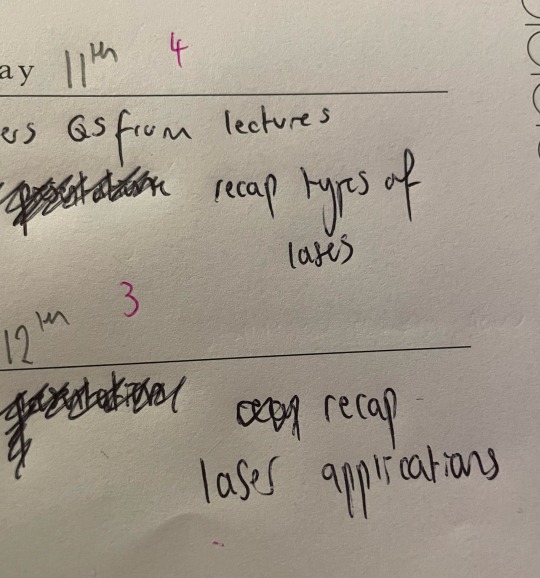 ay 11th 4
ers Qs from lectures
recap types of
lases
12th 3
recap
laser applications